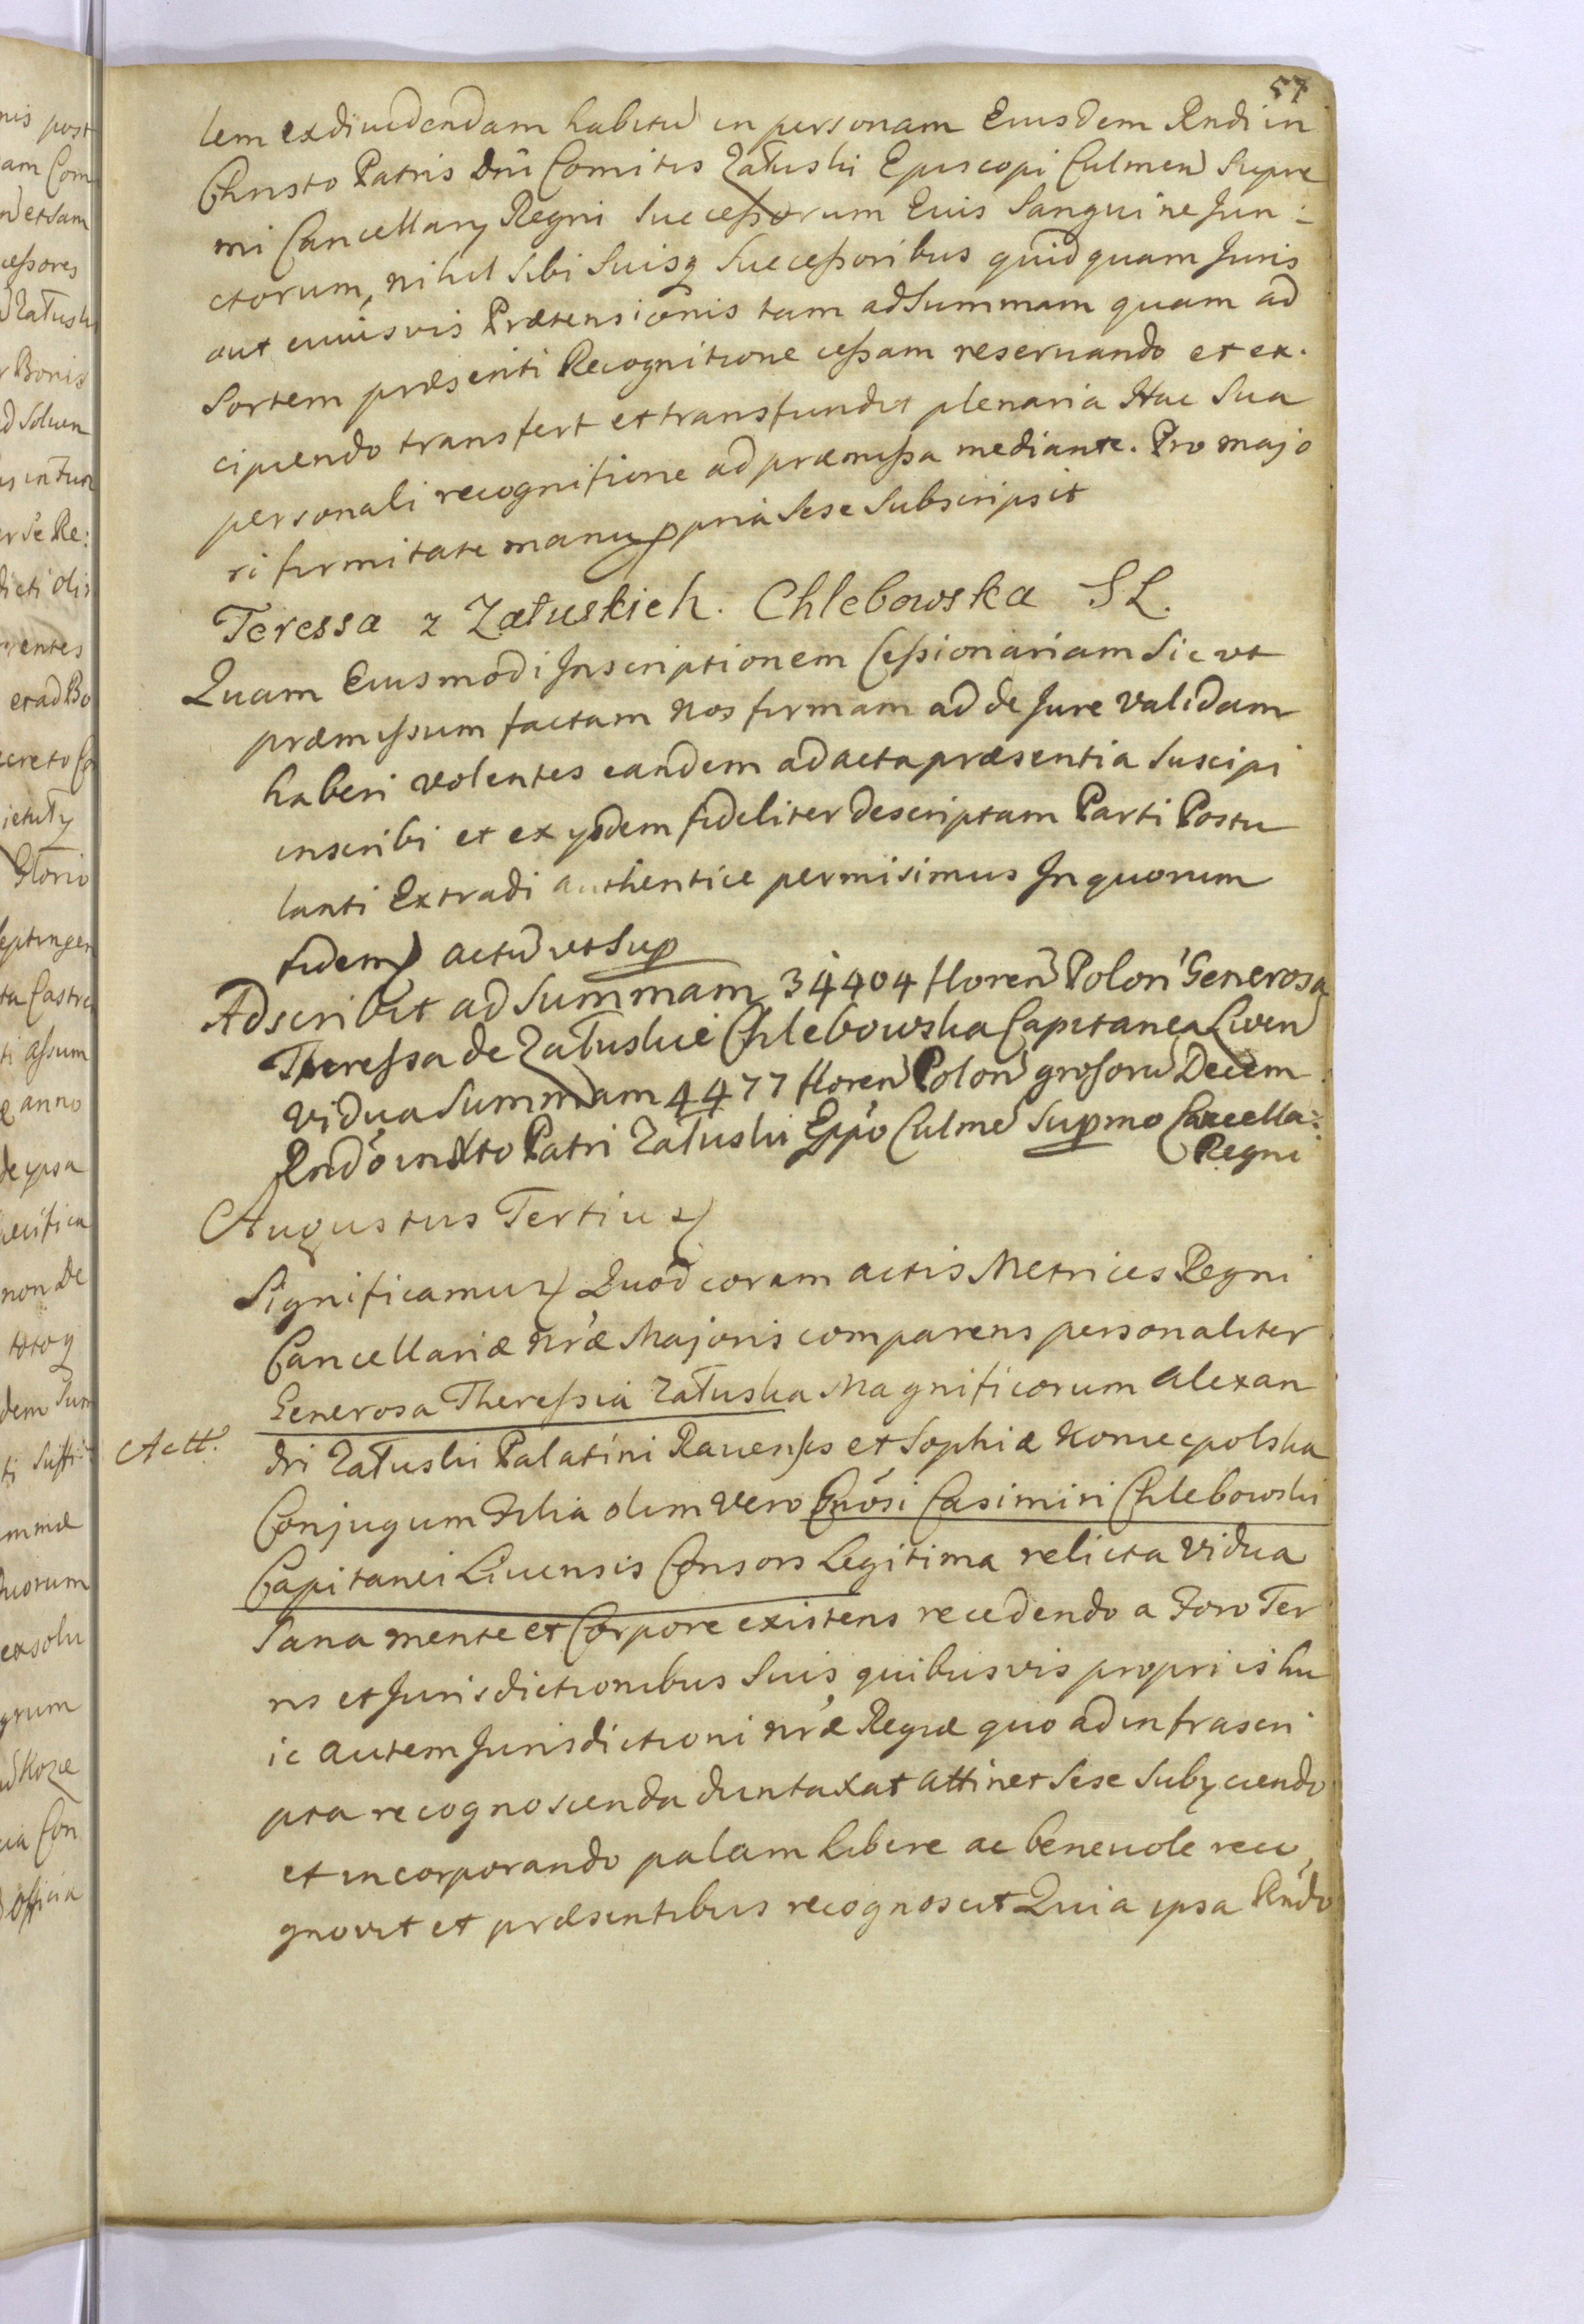 57
lem exdiuidendam habitu in personam Eiusdem Rndi in
Christo Patris Dni Comitis Załuski Episcopi Culmen Supre
mi Cancellary Regni Succeßorum Eius Sanguine Jun:
ctorum, nihil sibi Suisq Succeßoribus quidquam Juris
aut cuiusvis Prætensionis tam ad Summam quam ad
Sortem præsenti Recognitione ceßam reseruando et ex.
cipiendo transfert et transfundit plenaria Hac Sua
personali recognitione ad præmißa mediante. Pro majo
ri firmitate manu ppria Sese Subscripsit
Teressa z Załuskich. Chlebowska SL.
Quam Eiusmodi Inscriptionem Ceßionariam Sic ut
præmißum factam Nos firmam ad de Jure validam
haberi volentes eandem ad acta præsentia Suscipi
inscribi et ex ysdem fideliter descriptam Parti Postu
lanti Extradi authentice permisimus In quorum
fidem actu ut Sup
Adscribit ad Summam 34404 floren Polon Generosa
Thereßa de Załuskie Chlebowska Capitanea Liven
vidua Summam 4477 floren Polon großoru Decem
Rndo in Xto Patri Załuski Eppo Culme Supmo Cancella:
Regni
Augustus Tertius
Significamus Quod coram actis Metrices Regni
Cancellariæ nræ Majoris comparens personaliter
Generosa Thereßia Załuska Magnificorum Alexan
Actt.
dri Załuski Palatini Rauensis et Sophiæ Koniecpolska
Conjugum Filia olim vero Gnosi Casimiri Chlebowski
Capitanei Liuensis Consors Legitima relicta vidua
Sana mente et Corpore existens recedendo a Foro Ter
ris et Jurisdictionibus Suis quibusvis proprijs hu
ic autem Jurisdictioni nræ Regiæ quo ad infrascri
pta recognoscenda duntaxat attinet Sese Subyciendo
et incorporando palam libere ac beneuole reco,
gnovit et præsentibus recognoscit Quia ipsa Rndo